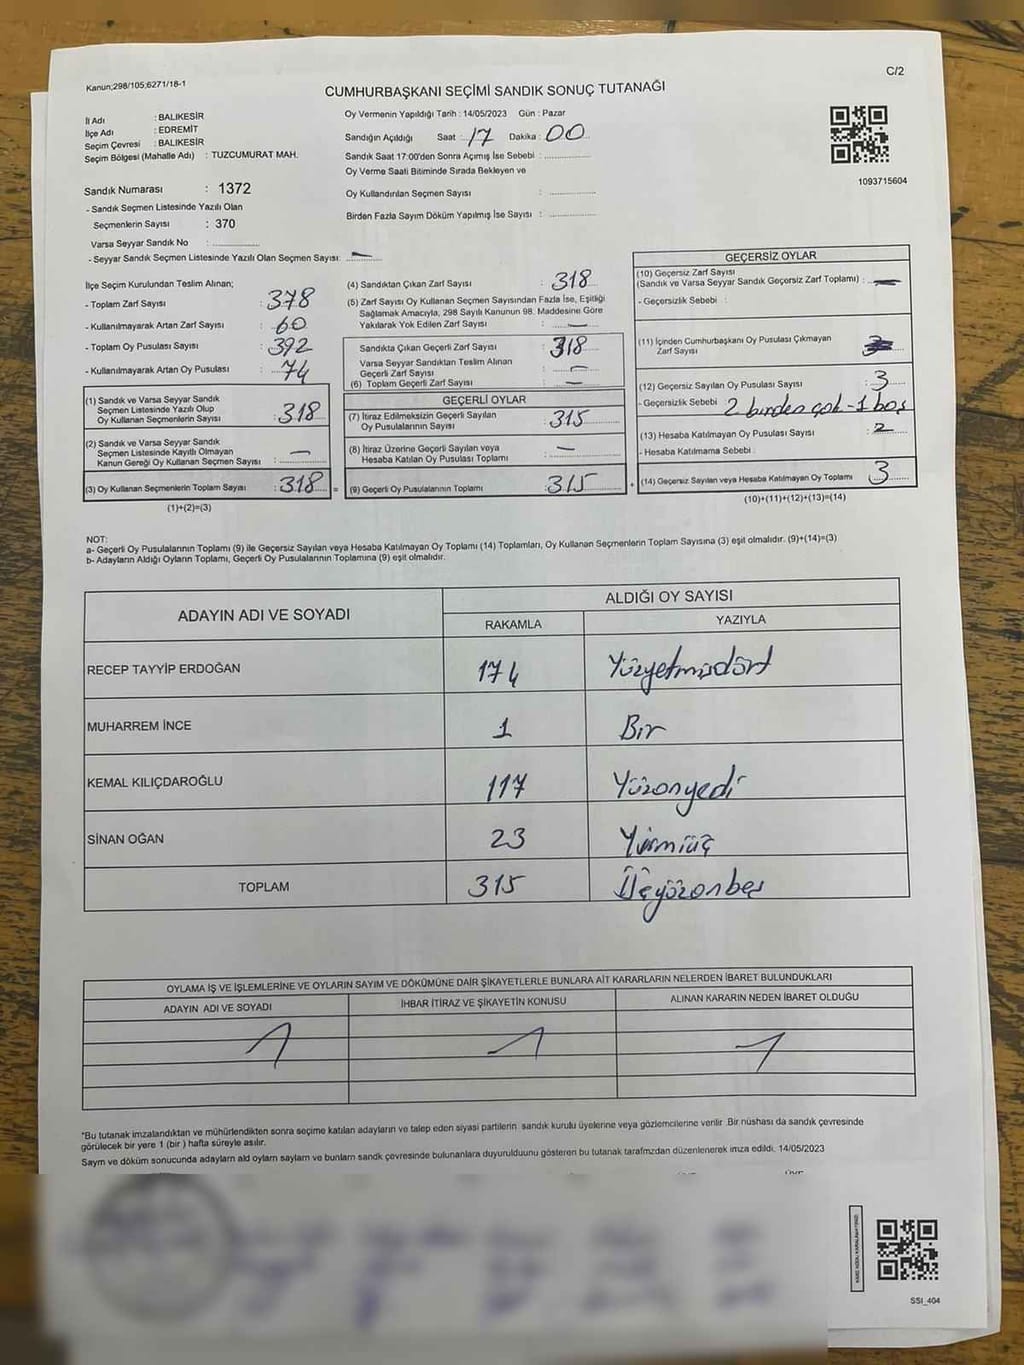 C/2
Kanun;298/105;6271/18-1
CUMHURBAŞKANI SEÇİMİ SANDIK SONUÇ TUTANAĞI
İl Adı : BALIKESİR
İlçe Adı : EDREMİT
Seçim Çevresi : BALIKESİR
Seçim Bölgesi (Mahalle Adı) : TUZCUMURAT MAH.
Sandık Numarası : 1372
- Sandık Seçmen Listesinde Yazılı Olan
Seçmenlerin Sayısı : 370
Varsa Seyyar Sandık No :
- Seyyar Sandık Seçmen Listesinde Yazılı Olan Seçmen Sayısı: —
Oy Vermenin Yapıldığı Tarih : 14/05/2023 Gün : Pazar
Sandığın Açıldığı Saat : 17 Dakika : 00
Sandık Saat 17:00'den Sonra Açımış İse Sebebi :
Oy Verme Saati Bitiminde Sırada Bekleyen ve
Oy Kullandırılan Seçmen Sayısı :
Birden Fazla Sayım Döküm Yapılmış İse Sayısı :
1093715604
İlçe Seçim Kurulundan Teslim Alınan;
- Toplam Zarf Sayısı : 378
- Kullanılmayarak Artan Zarf Sayısı : 60
- Toplam Oy Pusulası Sayısı : 392
- Kullanılmayarak Artan Oy Pusulası : 74
(1) Sandık ve Varsa Seyyar Sandık
Seçmen Listesinde Yazılı Olup
Oy Kullanan Seçmenlerin Sayısı : 318
(2) Sandık ve Varsa Seyyar Sandık
Seçmen Listesinde Kayıtlı Olmayan
Kanun Gereği Oy Kullanan Seçmen Sayısı : —
(3) Oy Kullanan Seçmenlerin Toplam Sayısı : 318 =
(1)+(2)=(3)
(4) Sandıktan Çıkan Zarf Sayısı : 318
(5) Zarf Sayısı Oy Kullanan Seçmen Sayısından Fazla İse, Eşitliği
Sağlamak Amacıyla, 298 Sayılı Kanunun 98. Maddesine Göre
Yakılarak Yok Edilen Zarf Sayısı : —
Sandıkta Çıkan Geçerli Zarf Sayısı : 318
Varsa Seyyar Sandıktan Teslim Alınan
Geçerli Zarf Sayısı : —
(6) Toplam Geçerli Zarf Sayısı : —
GEÇERLİ OYLAR
(7) İtiraz Edilmeksizin Geçerli Sayılan
Oy Pusulalarının Sayısı : 315
(8) İtiraz Üzerine Geçerli Sayılan veya
Hesaba Katılan Oy Pusulası Toplamı : —
(9) Geçerli Oy Pusulalarının Toplamı : 315 +
GEÇERSİZ OYLAR
(10) Geçersiz Zarf Sayısı
(Sandık ve Varsa Seyyar Sandık Geçersiz Zarf Toplamı) : —
- Geçersizlik Sebebi :
(11) İçinden Cumhurbaşkanı Oy Pusulası Çıkmayan
Zarf Sayısı :
(12) Geçersiz Sayılan Oy Pusulası Sayısı : 3
- Geçersizlik Sebebi : 2 birden çok - 1 boş
(13) Hesaba Katılmayan Oy Pusulası Sayısı :
- Hesaba Katılmama Sebebi :
(14) Geçersiz Sayılan veya Hesaba Katılmayan Oy Toplamı : 3
(10)+(11)+(12)+(13)=(14)
NOT:
a- Geçerli Oy Pusulalarının Toplamı (9) ile Geçersiz Sayılan veya Hesaba Katılmayan Oy Toplamı (14) Toplamları, Oy Kullanan Seçmenlerin Toplam Sayısına (3) eşit olmalıdır. (9)+(14)=(3)
b- Adayların Aldığı Oyların Toplamı, Geçerli Oy Pusulalarının Toplamına (9) eşit olmalıdır.
ADAYIN ADI VE SOYADI ALDIĞI OY SAYISI
RAKAMLA YAZIYLA
RECEP TAYYİP ERDOĞAN 174 Yüzyetmişdört
MUHARREM İNCE 1 Bir
KEMAL KILIÇDAROĞLU 117 Yüzonyedi
SİNAN OĞAN 23 Yirmiüç
TOPLAM 315 Üçyüzonbeş
OYLAMA İŞ VE İŞLEMLERİNE VE OYLARIN SAYIM VE DÖKÜMÜNE DAİR ŞİKAYETLERLE BUNLARA AİT KARARLARIN NELERDEN İBARET BULUNDUKLARI
ADAYIN ADI VE SOYADI İHBAR İTİRAZ VE ŞİKAYETİN KONUSU ALINAN KARARIN NEDEN İBARET OLDUĞU
*Bu tutanak imzalandıktan ve mühürlendikten sonra seçime katılan adayların ve talep eden siyasi partilerin sandık kurulu üyelerine veya gözlemcilerine verilir .Bir nüshası da sandık çevresinde
görülecek bir yere 1 (bir ) hafta süreyle asılır.
Sayım ve döküm sonucunda adayların ald oyların sayları ve bunların sandk çevresinde bulunanlara duyurulduunu gösteren bu tutanak tarafmzdan düzenlenerek imza edildi. 14/05/2023
SSI_404